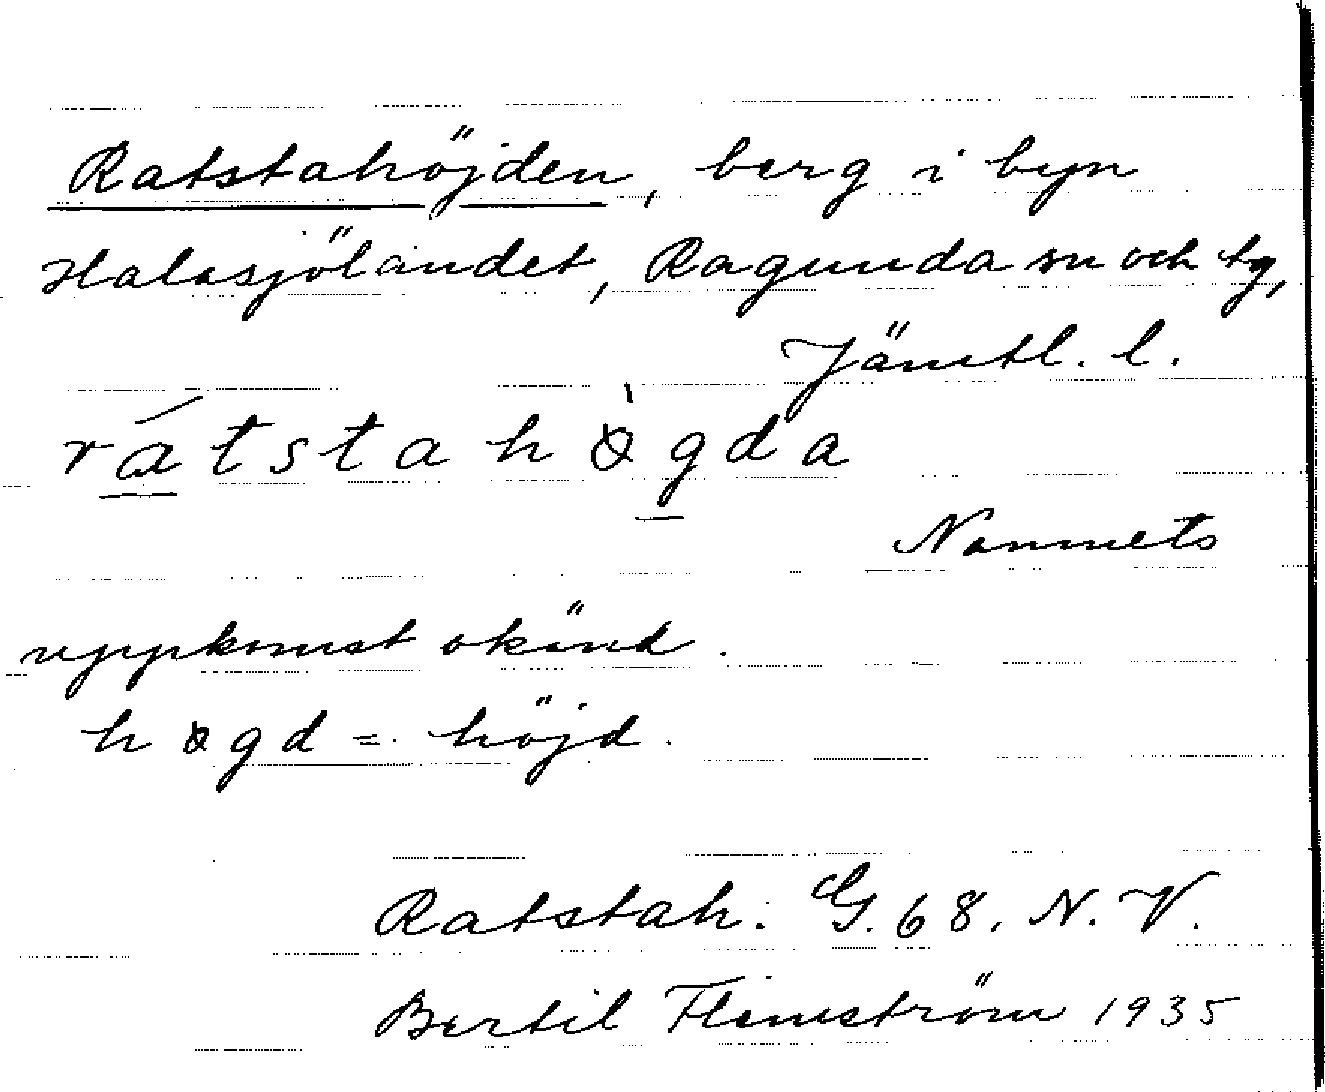 Ratstahöjden, berg i byn
Halasjölandet, Ragunda sn och tg,
Jämtl. l.
rátstahògda
Namnets
uppkomst okänd.
høgd = höjd.
Ratstah: G. 68. N. V.
Bertil Flemström 1935